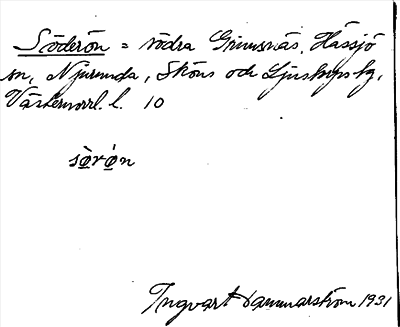 Söderön = södra Grimsnäs, Hässjö
sn, Njurunda, Sköns och Ljustorps tg,
Västernorrl. l. 10
sø̀rø̀n
Ingvart Hammarström 1931